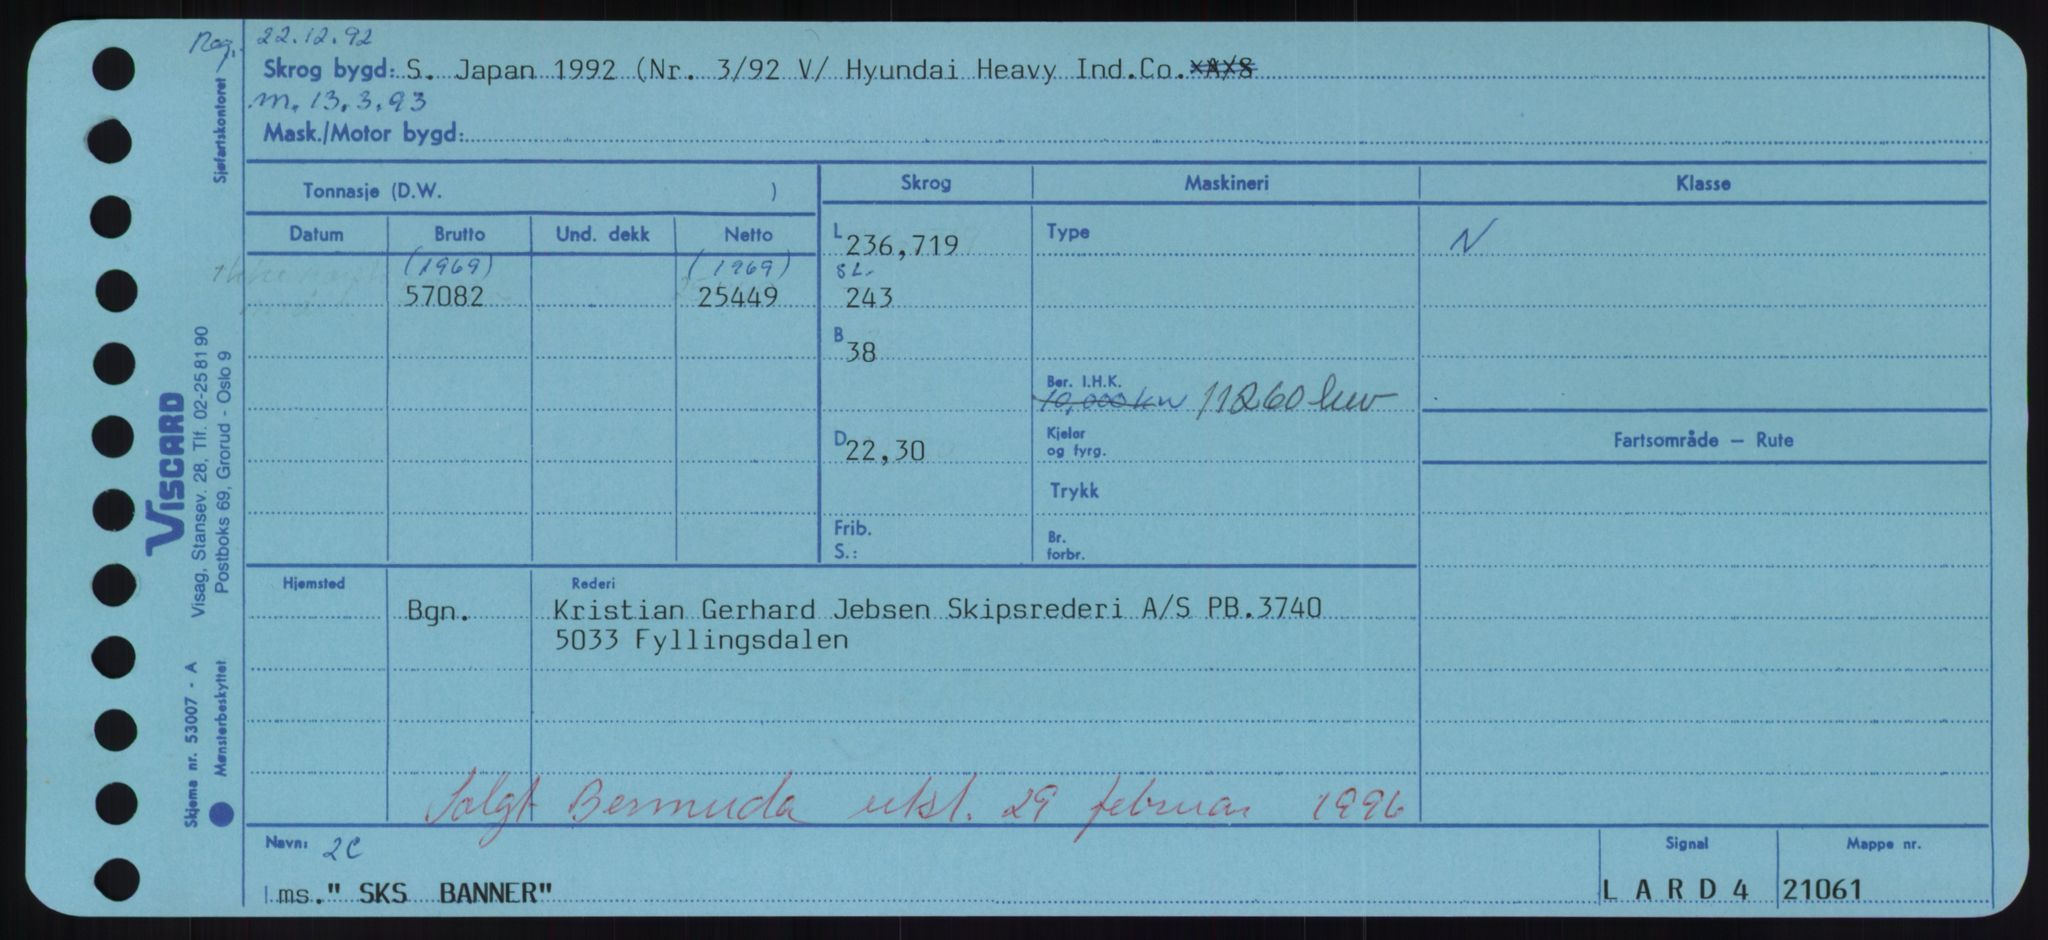 Reg. 22.12.92
Skrog bygd: S. Japan 1992 (Nr. 3/92 V/ Hyundai Heavy Ind.Co. A/S
m. 13.3.93
Mask./Motor bygd:
Sjøfartskontoret
Tonnasje (D.W. )
Skrog Maskineri Klasse
Datum Brutto Und. dekk Netto
L 236,719 Type N
(1969) (1969) SL.
57082 25449 243
B 38
Ber. I.H.K.
10,000 kW 11260 kw
D 22,30
Kjeler
og fyrg.
Fartsområde — Rute
Trykk
Frib.
S.:
Br.
forbr.
VISCARD
Visag, Stansev. 28, Tlf. 02-25 81 90
Postboks 69, Grorud - Oslo 9
Hjemsted Rederi
Bgn. Kristian Gerhard Jebsen Skipsrederi A/S PB.3740
5033 Fyllingsdalen
Skjema nr. 53007 - A
Mønsterbeskyttet
Solgt Bermuda utsl. 29 februar 1996
Navn: 2C Signal Mappe nr.
ms. " SKS BANNER" L A R D 4 21061